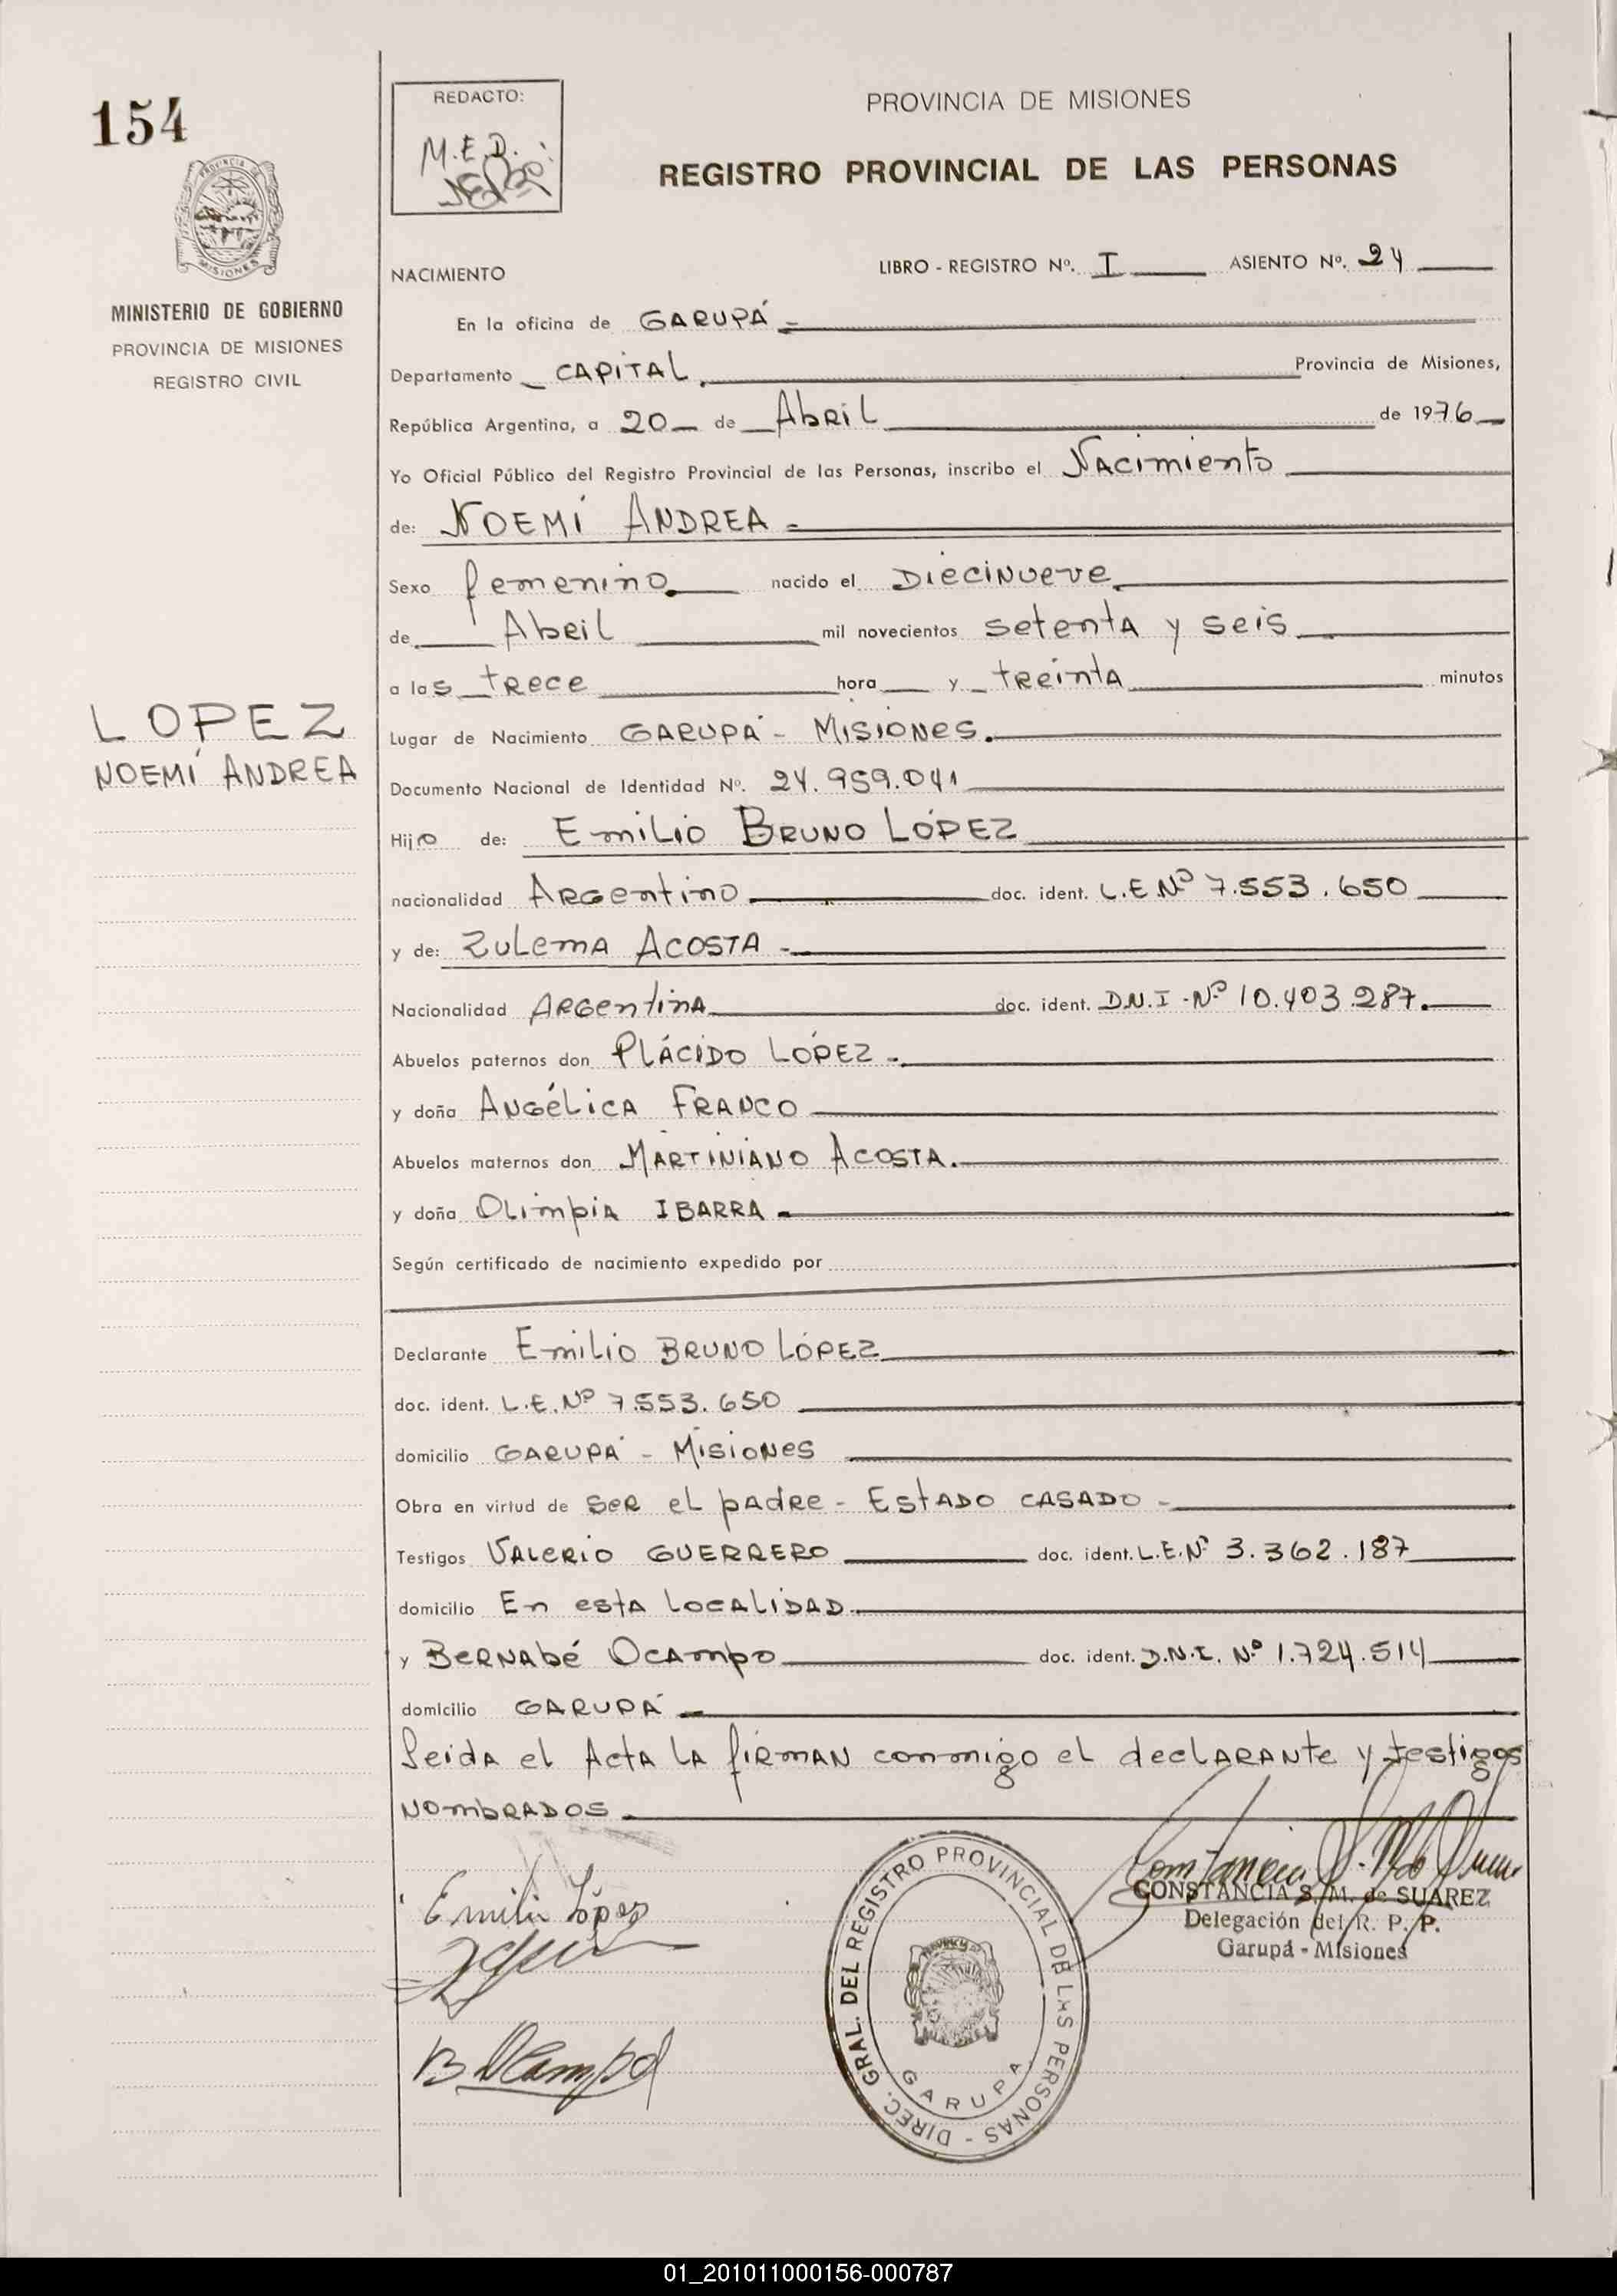 154
REDACTO:
M.E.D.
PROVINCIA DE MISIONES
REGISTRO PROVINCIAL DE LAS PERSONAS
PROVINCIA DE
MISIONES
MINISTERIO DE GOBIERNO
PROVINCIA DE MISIONES
REGISTRO CIVIL
NACIMIENTO
LIBRO - REGISTRO Nº. I ASIENTO Nº. 24
En la oficina de GARUPÁ -
Departamento CAPITAL. Provincia de Misiones,
República Argentina, a 20 de Abril de 1976
Yo Oficial Público del Registro Provincial de las Personas, inscribo el Nacimiento
de: NOEMÍ ANDREA -
Sexo femenino. nacido el Diecinueve
de Abril mil novecientos setenta y seis
a las trece hora y treinta minutos
LOPEZ
NOEMÍ ANDREA
Lugar de Nacimiento GARUPÁ - MISIONES.
Documento Nacional de Identidad Nº. 24.959.041
Hijo de: Emilio BRUNO LÓPEZ
nacionalidad Argentino doc. ident. L.E.Nº 7.553.650
y de: Zulema ACOSTA -
Nacionalidad Argentina doc. ident. D.N.I-Nº 10.403.287.
Abuelos paternos don PLÁCIDO LÓPEZ -
y doña ANGÉLICA FRANCO
Abuelos maternos don MARTINIANO ACOSTA.
y doña Olimpia IBARRA -
Según certificado de nacimiento expedido por
Declarante Emilio BRUNO LÓPEZ
doc. ident. L.E.Nº 7.553.650
domicilio GARUPÁ - MISIONES
Obra en virtud de ser el padre - Estado CASADO -
Testigos Valerio GUERRERO doc. ident. L.E.Nº 3.362.187
domicilio En esta localidad
y Bernabé Ocampo doc. ident. D.N.I. Nº 1.724.514
domicilio GARUPÁ -
Leida el Acta la firman conmigo el declarante y testigos
nombrados.
Emilio López
B Ocampo
DIREC. GRAL. DEL REGISTRO PROVINCIAL DE LAS PERSONAS -
GARUPA
CONSTANCIA S. M. de SUAREZ
Delegación del R. P. P.
Garupá - Misiones
01_201011000156-000787